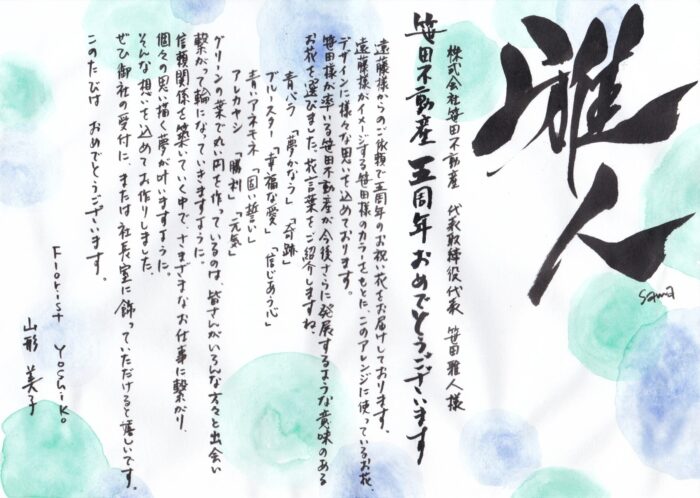 雅人
sama
株式会社笹田不動産 代表取締役代表 笹田雅人様
笹田不動産 五周年おめでとうございます
遠藤様からのご依頼で五周年のお祝い花をお届けしております。
遠藤様がイメージする笹田様のカラーをもとに、このアレンジに使っているお花、
デザインに様々な思いを込めております。
笹田様が率いる笹田不動産が今後さらに発展するような意味のある
お花を選びました。花言葉をご紹介しますね。
青いバラ 「夢かなう」 「奇跡」
ブルースター 「幸福な愛」 「信じあう心」
青いアネモネ 「固い誓い」
アレカヤシ 「勝利」 「元気」
グリーンの葉で丸い円を作っているのは、皆さんがいろんな方々と出会い
繋がって輪になっていきますように。
信頼関係を築いていく中で、さまざまなお仕事に繋がり、
個々の思い描く夢が叶いますように。
そんな想いを込めてお作りしました。
ぜひ御社の受付に、または社長室に飾っていただけると嬉しいです。
このたびは おめでとうございます。
Florist Yoshiko
山形 美子